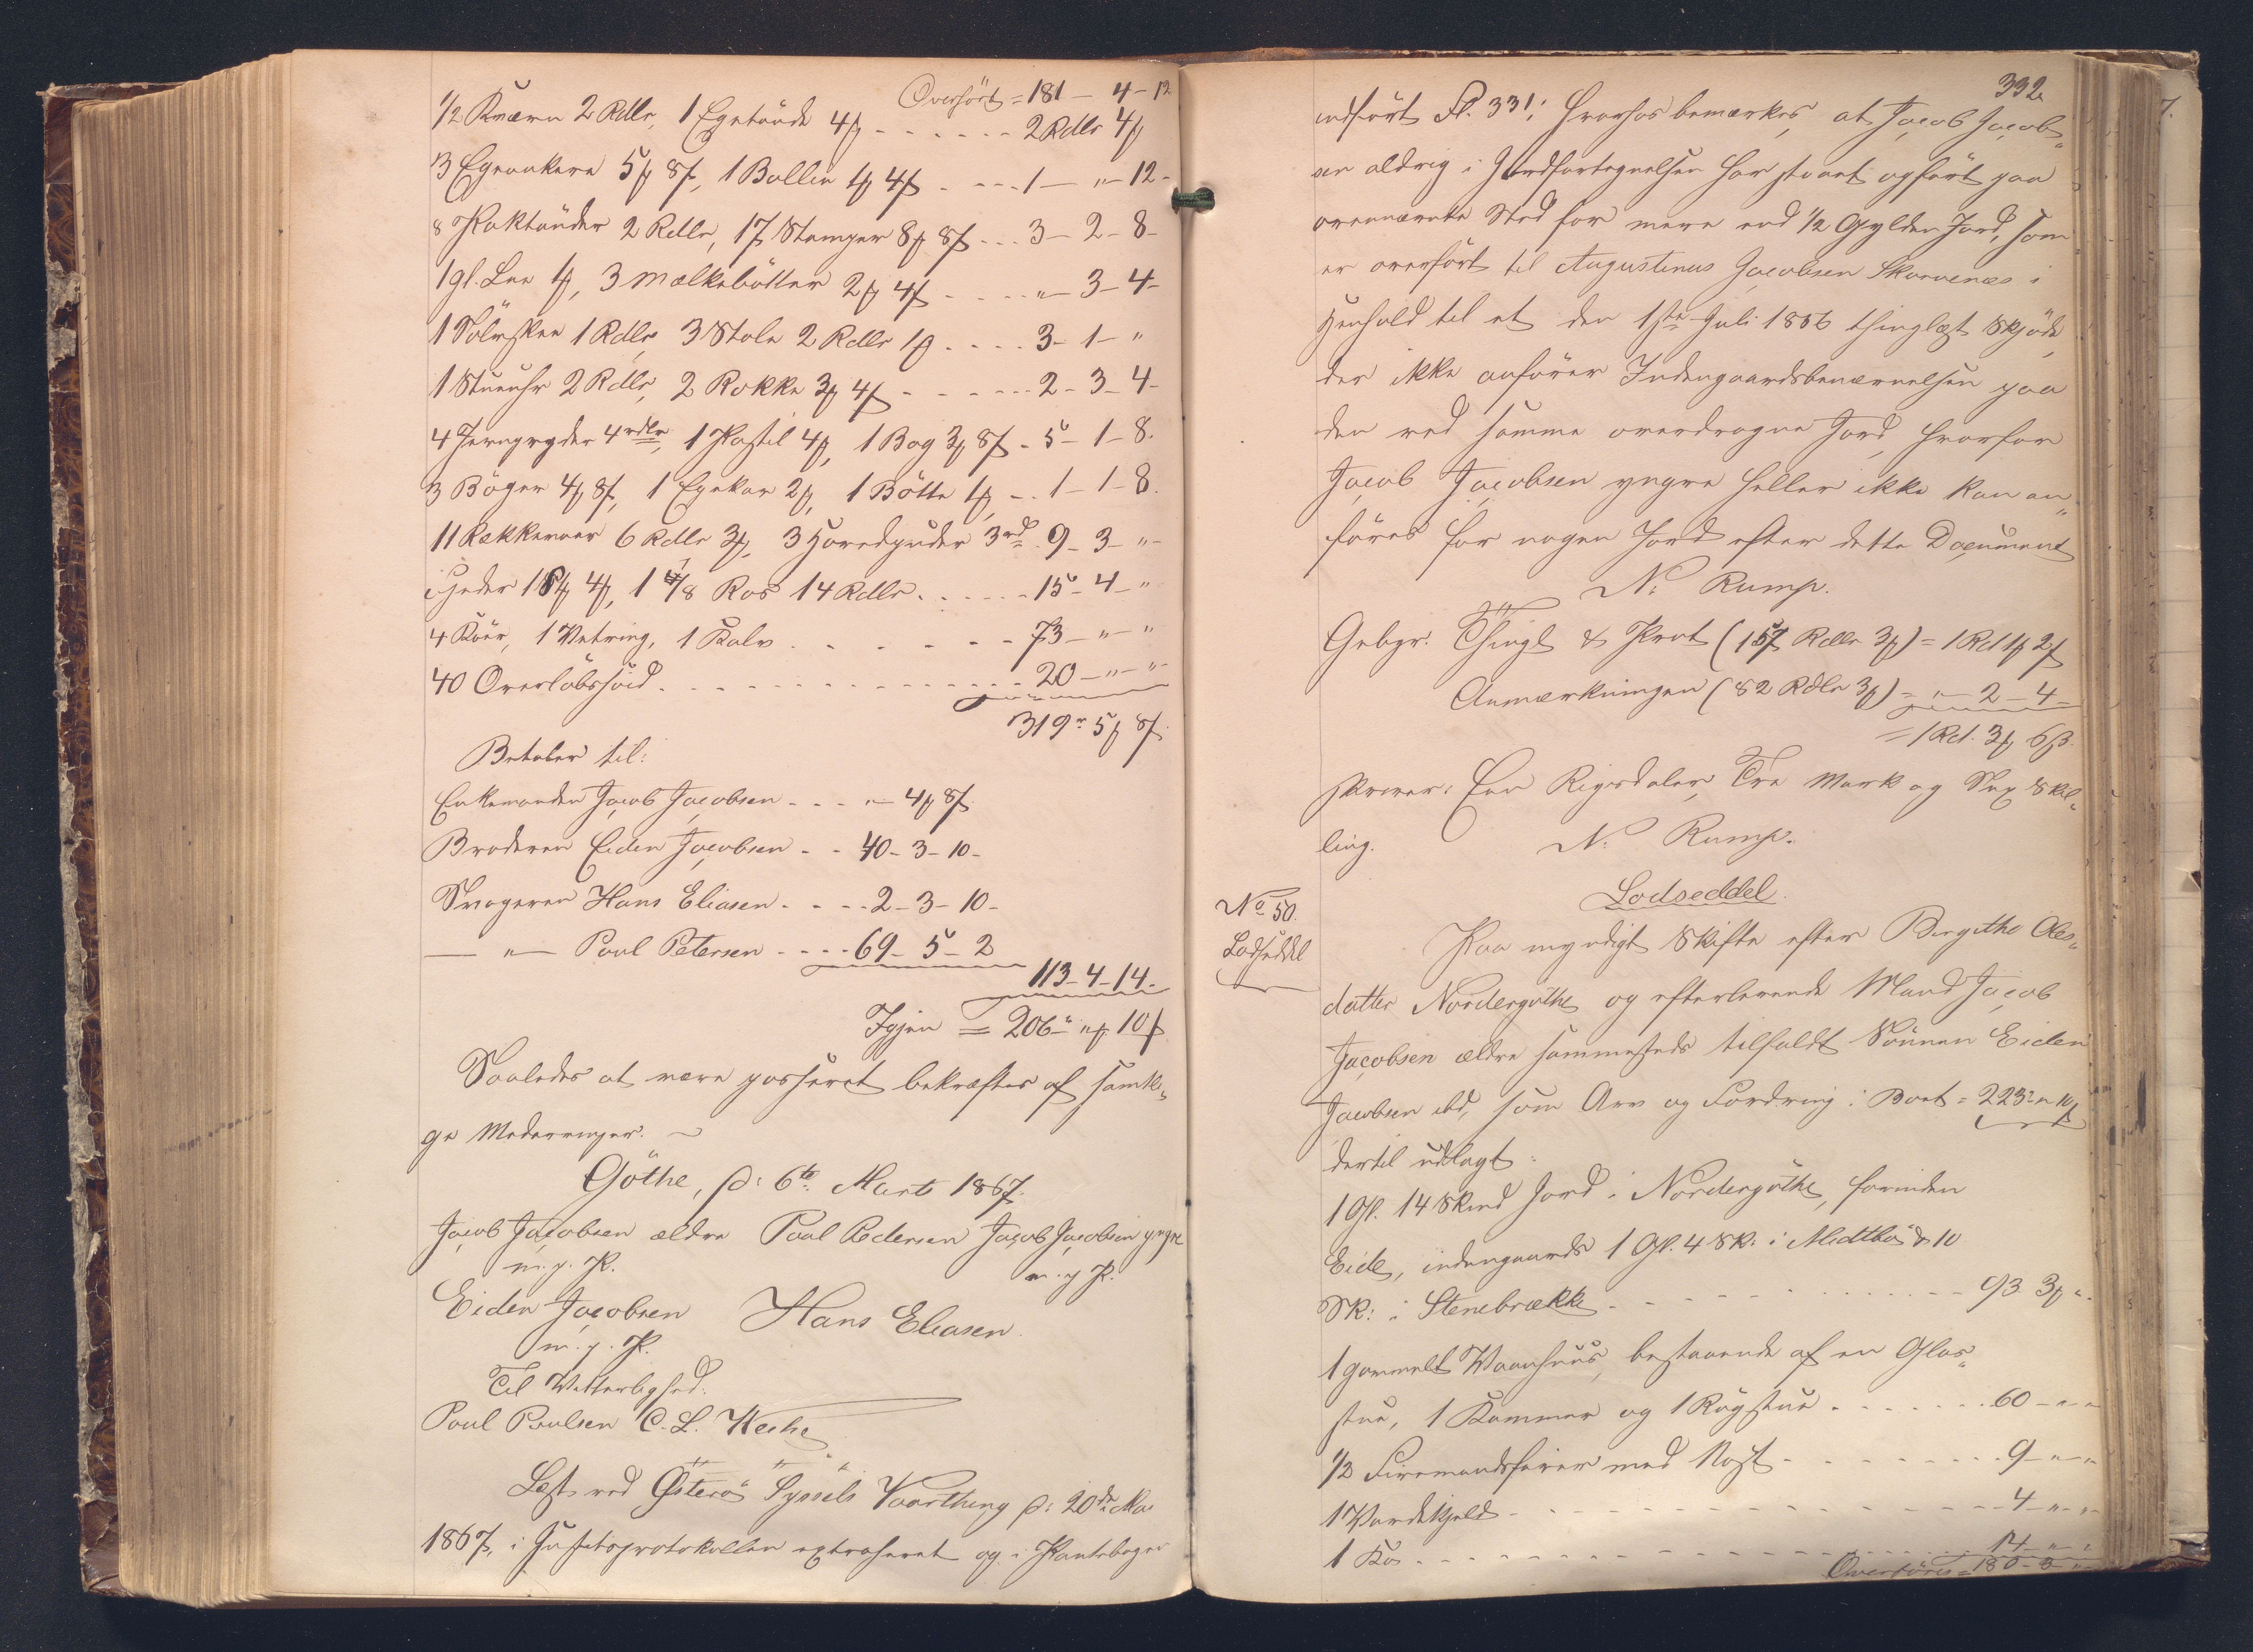 Overfört = 181 - 4 - 12
1/2 Kværn 2 Rdlr, 1 Egetönde 4 ₰ - - - - - - 2 Rdlr 4 ₰
3 Egeankere 5 ₰ 8 ß, 1 Ballie 1 ₰ 4 ß - - - - 1 - " - 12 -
8 Saktönder 2 Rdlr, 17 Stamper 8 ₰ 8 ß - - - 3 - 2 - 8 -
1 gl. Lee 1 ₰, 3 Mælkebötter 2 ₰ 4 ß - - - - " - 3 - 4 -
1 Sölvskee 1 Rdlr 3 Stole 2 Rdlr 1 ₰ - - - - 3 - 1 - "
1 Stueuhr 2 Rdlr, 2 Rokke 3 ₰ 4 ß - - - - - - 2 - 3 - 4 -
4 Jerngryder 4 rdlr, 1 Postil 4 ₰, 1 Bog 3 ₰ 8 ß - 5 - 1 - 8.
3 Böger 4 ₰ 8 ß, 1 Egekar 2 ₰, 1 Bötte 1 ₰ - - 1 - 1 - 8.
11 Rækkevaar 6 Rdlr 3 ₰, 3 Hovedpuder 3 rd 9 - 3 - " -
4 ₰, 1 1/8 Ros 14 Rdlr - - - - - - 15 - 4 - "
4 Köer, 1 Vetring, 1 Kalv - - - - - - 73 - " - "
40 Overlöbsfoid - - - - - - - - - - - - 20 - " - "
319 r 5 ₰ 8 ß
Betaler til:
Enkemanden Jacob Jacobsen - - - " - 4 ₰ 8 ß
Broderen Eiden Jacobsen - - 40 - 3 - 10 -
Svogeren Hans Eliasen - - - - 2 - 3 - 10 -
— " — Poul Petersen - - - - 69 - 5 - 2
113 - 4 - 14 -
Igjen = 206 " ₰ 10 ß
Saaledes at være passeret bekræftes af samtli„
ge Medarvinger. ~
Göthe, d: 6te Marts 1867.
Jacob Jacobsen ældre Poul Pedersen Jacob Jacobsen yngre
m. p. P. m. p P.
Eiden Jacobsen Hans Eliasen
m. p. P.
Til Vitterlighed:
Poul Poulsen C. L. Weihe
Læst ved Österö Syssels Vaarthing d: 20de Mai
1867, i Justitsprotokollen extraheret og i Pantebogen
332
indfört Fl. 331; hvorhos bemærkes, at Jacob Jacob„
sen aldrig i Jordfortegnelsen har staaet opfört paa
ovennævnte Sted for mere end 1/2 Gylden Jord, som
er overfört til Augustinus Jacobsen Skaarenæs i
Henhold til et den 1ste Juli 1856 thinglæst Skjöde,
der ikke anförer Indengaardsbenævnelsen paa
den ved samme overdragne Jord, hvorfor
Jacob Jacobsen yngre heller ikke kan an„
föres for nogen Jord efter dette Document
N. Rump.
Gebyr: Thingl & Prot (157 Rdlr 3 ₰) = 1 Rd 1 ₰ 2 ß
Anmærkningen (82 Rdlr 3 ₰) = " - 2 - 4 -
= 1 Rd. 3 ₰ 6 ß.
skriver: Een Rigsdaler, Tre Mark og Sex Skil„
ling. N. Rump.
Lodseddel.
No 50.
Lodseddel
Paa myndigt Skifte efter Birgithe Oles„
datter Nordergöthe og efterlevende Mand Jacob
Jacobsen ældre sammesteds tilfaldt Sönnen Eiden
Jacobsen ibd, som Arv og Fordring i Boet = 223 r " 10 ß
dertil udlagt:
1 Gl. 14 Skind Jord i Nordergöthe, forinden
Eide, indengaards 1 Gl. 4 Sk: i Midtbö & 10
Sk: i Stenebrække - - - - - - - - - - - - 93 3 ₰ " -
1 gammelt Vaanhuus, bestaaende af en Glas„
stue, 1 Kammer og 1 Rögstue - - - - - - - 60 - " - "
1/2 Firemandsfarer med Nost - - - - - - - - 9 - " - "
1 Vardekjeld - - - - - - - - - - - - - - - - 4 - " - "
1 Ko - - - - - - - - - - - - - - - - - - - - 14 - " - "
Overföres = 180 - 3 - "